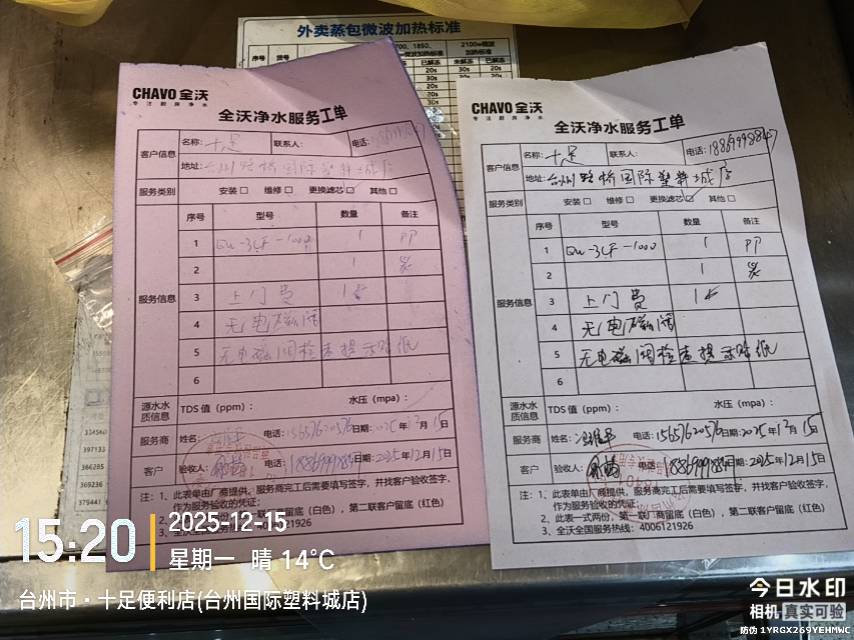 外卖蒸包微波加热标准
序号
货号
700、1850、
2100w微波
加热标准
已解冻
未解冻
已解冻
20s
30s
20s
CHAVO 全沃
专注厨房净水
全沃净水服务工单
客户信息
名称:十足
联系人:
电话:
地址:台州路桥国际塑料城店
服务类别
安装□ 维修□ 更换滤芯□ 其他□
服务信息
序号 型号 数量 备注
1 QW-3CF-1000 1 PP
2 1 炭
3 上门费 1次
4 无电磁阀
5 无电磁阀检查提示贴纸
6
源水水质信息
TDS 值(ppm): 水压(mpa):
服务商
姓名: 电话:15657620576 日期:2025年12月15日
客户
验收人: 电话:18869998847 日期:2025年12月15日
注:1、此表单由厂商提供。服务商完工后需要填写签字,并找客户验收签字,
作为服务验收的凭证;
2、此表一式两份,第一联厂商留底(白色),第二联客户留底(红色)
3、全沃全国服务热线:4006121926
CHAVO 全沃
专注厨房净水
全沃净水服务工单
客户信息
名称:十足
联系人:
电话:18869998847
地址:台州路桥国际塑料城店
服务类别
安装□ 维修□ 更换滤芯☑ 其他□
服务信息
序号 型号 数量 备注
1 QW-3CF-1000 1 PP
2 1 炭
3 上门费 1次
4 无电磁阀
5 无电磁阀检查提示贴纸
6
源水水质信息
TDS 值(ppm): 水压(mpa):
服务商
姓名: 电话:15657620576 日期:2025年12月15日
客户
验收人: 电话:18869998847 日期:2025年12月15日
注:1、此表单由厂商提供。服务商完工后需要填写签字,并找客户验收签字,
作为服务验收的凭证;
2、此表一式两份,第一联厂商留底(白色),第二联客户留底(红色)
3、全沃全国服务热线:4006121926
397133
386285
369236
379447
15:20
2025-12-15
星期一 晴 14℃
台州市·十足便利店(台州国际塑料城店)
今日水印
相机 真实可验
防伪 1YRGX269YEHMWC